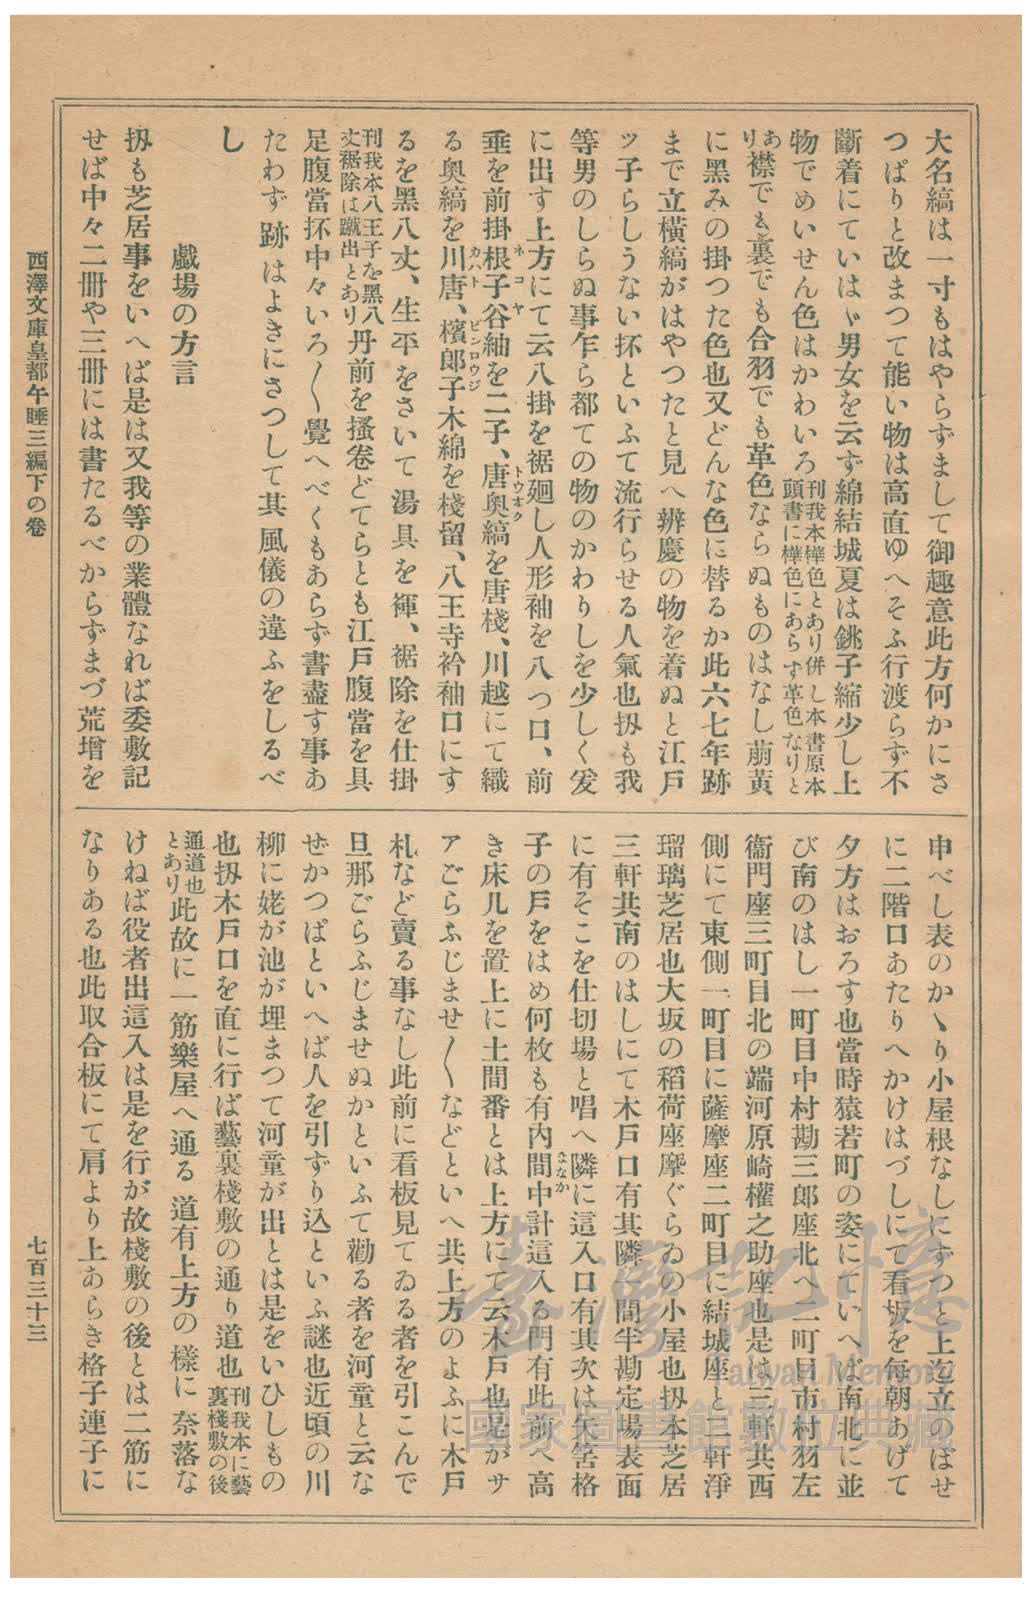 大名縞は一寸もはやらずまして御趣意此方何かにさ
つぱりと改まつて能い物は高直ゆへそふ行渡らず不
斷着にていはゞ男女を云ず綿結城夏は銚子縮少し上
物でめいせん色はかわいろ刊我本樺色とあり併し本書原本頭書に樺色にあらず革色なりと
あり襟でも裏でも合羽でも革色ならぬものはなし萠黃
に黑みの掛つた色也又どんな色に替るか此六七年跡
まで立橫縞がはやつたと見へ辨慶の物を着ぬと江戶
ッ子らしうない抔といふて流行らせる人氣也扨も我
等男のしらぬ事乍ら都ての物のかわりしを少しく爰
に出す上方にて云八掛を裾廻し人形袖を八つ口、前
垂を前掛根子谷紬を二子、唐奧縞を唐棧、川越にて織
ネコヤ
トウオク
る奧縞を川唐、檳郎子木綿を棧留、八王寺衿袖口にす
カハト
ビンロウジ
るを黑八𠀋、生平をさいて湯具を褌、裾除を仕掛
刊我本八王子を黑八丈裾除は蹴出とあり丹前を搔卷どてらとも江戶腹當を具
足腹當抔中々いろ〱覺へべくもあらず書盡す事あ
たわず跡はよきにさつして其風儀の違ふをしるべ
し
戲場の方言
扨も芝居事をいへば是は又我等の業體なれば委敷記
せば中々二冊や三冊には書たるべからずまづ荒增を
申べし表のかゝり小屋根なしにずつと上迄立のばせ
に二階口あたりへかけはづしにて看板を每朝あげて
夕方はおろす也當時猿若町の姿にていへば南北に並
び南のはし一町目中村勘三郎座北へ二町目市村羽左
衞門座三町目北の端河原崎權之助座也是は三軒共西
側にて東側一町目に薩摩座二町目に結城座と二軒淨
瑠璃芝居也大坂の稻荷座摩ぐらゐの小屋也扨本芝居
三軒共南のはしにて木戶口有其隣一間半勘定場表面
に有そこを仕切場と唱へ隣に這入口有其次は矢筈格
子の戶をはめ何枚も有內間中計這入る門有此前へ高
まなか
き床几を置上に土間番とは上方にて云木戶也是がサ
アごらふじませ〱などといへ共上方のよふに木戶
札など賣る事なし此前に看板見てゐる者を引こんで
旦那ごらふじませぬかといふて勸る者を河童と云な
ぜかつぱといへば人を引ずり込といふ謎也近頃の川
柳に姥が池が埋まつて河童が出とは是をいひしもの
也扨木戶口を直に行ば藝裏棧敷の通り道也刊我本に藝裏棧敷の後
通道也とあり此故に一筋樂屋へ通る道有上方の樣に奈落な
けねば役者出這入は是を行が故棧敷の後とは二筋に
なりある也此取合板にて肩より上あらき格子連子に
西澤文庫皇都午睡三編下の卷
七百三十三
臺灣記憶
Taiwan Memory
國家圖書館數位典藏